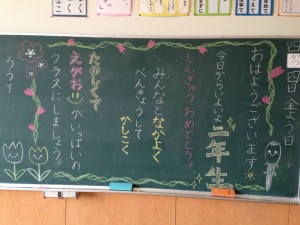 四日金よう日
おはようございます。
今日からいよいよ二年生
しんきゅうおめでとう
みんなとなかよく
べんきょうして かしこく
たのしくて
えがおがいっぱいの
クラスにしましょう。